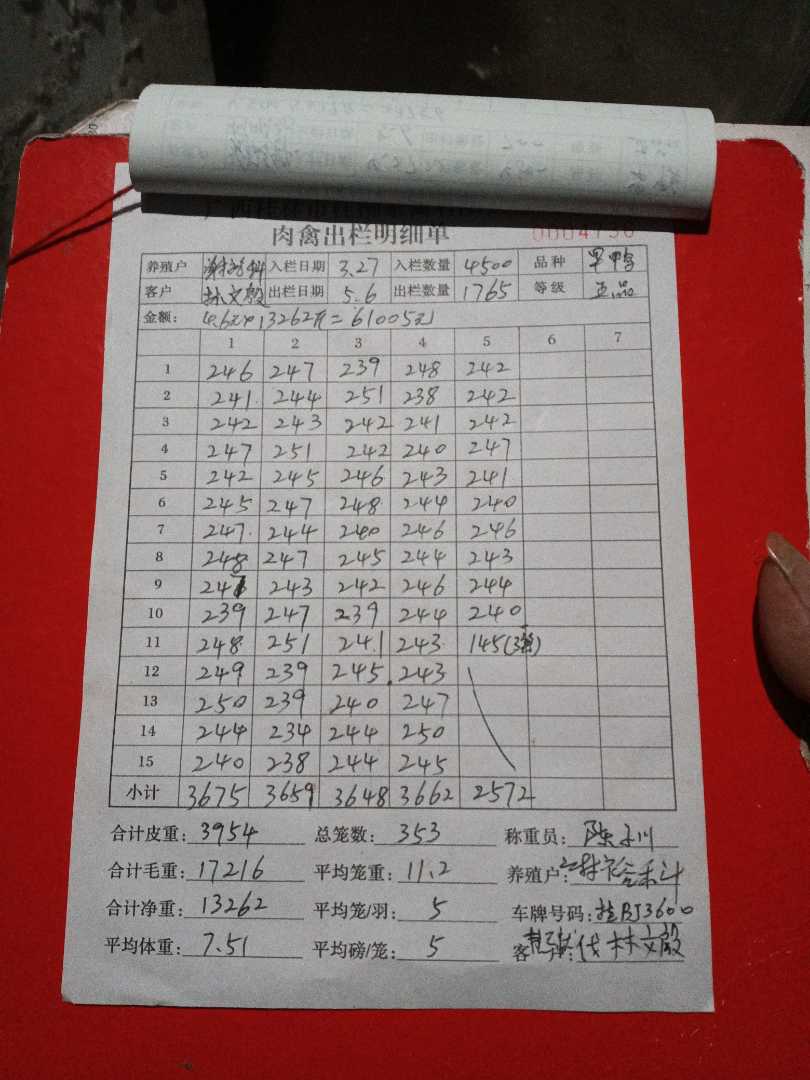 肉禽出栏明细单
养殖户 入栏日期 3.27 入栏数量 4500 品种
客户 林文殷 出栏日期 5.6 出栏数量 1765 等级 正品
金额: 4.6元×13262斤=61005元
1 2 3 4 5 6 7
1 246 247 239 248 242
2 241 244 251 238 242
3 242 243 242 241 242
4 247 251 242 240 247
5 242 245 246 243 241
6 245 247 248 244 240
7 247 244 240 246 246
8 248 247 245 244 243
9 247 243 242 246 244
10 239 247 239 244 240
11 248 251 241 243 145(3笼)
12 249 239 245 243
13 250 239 240 247
14 244 234 244 250
15 240 238 244 245
小计 3675 3659 3648 3662 2572
合计皮重: 3954 总笼数: 353 称重员:
合计毛重: 17216 平均笼重: 11.2 养殖户:
合计净重: 13262 平均笼/羽: 5 车牌号码: 桂BJ3600
平均体重: 7.51 平均磅/笼: 5 客户: 代林文殷